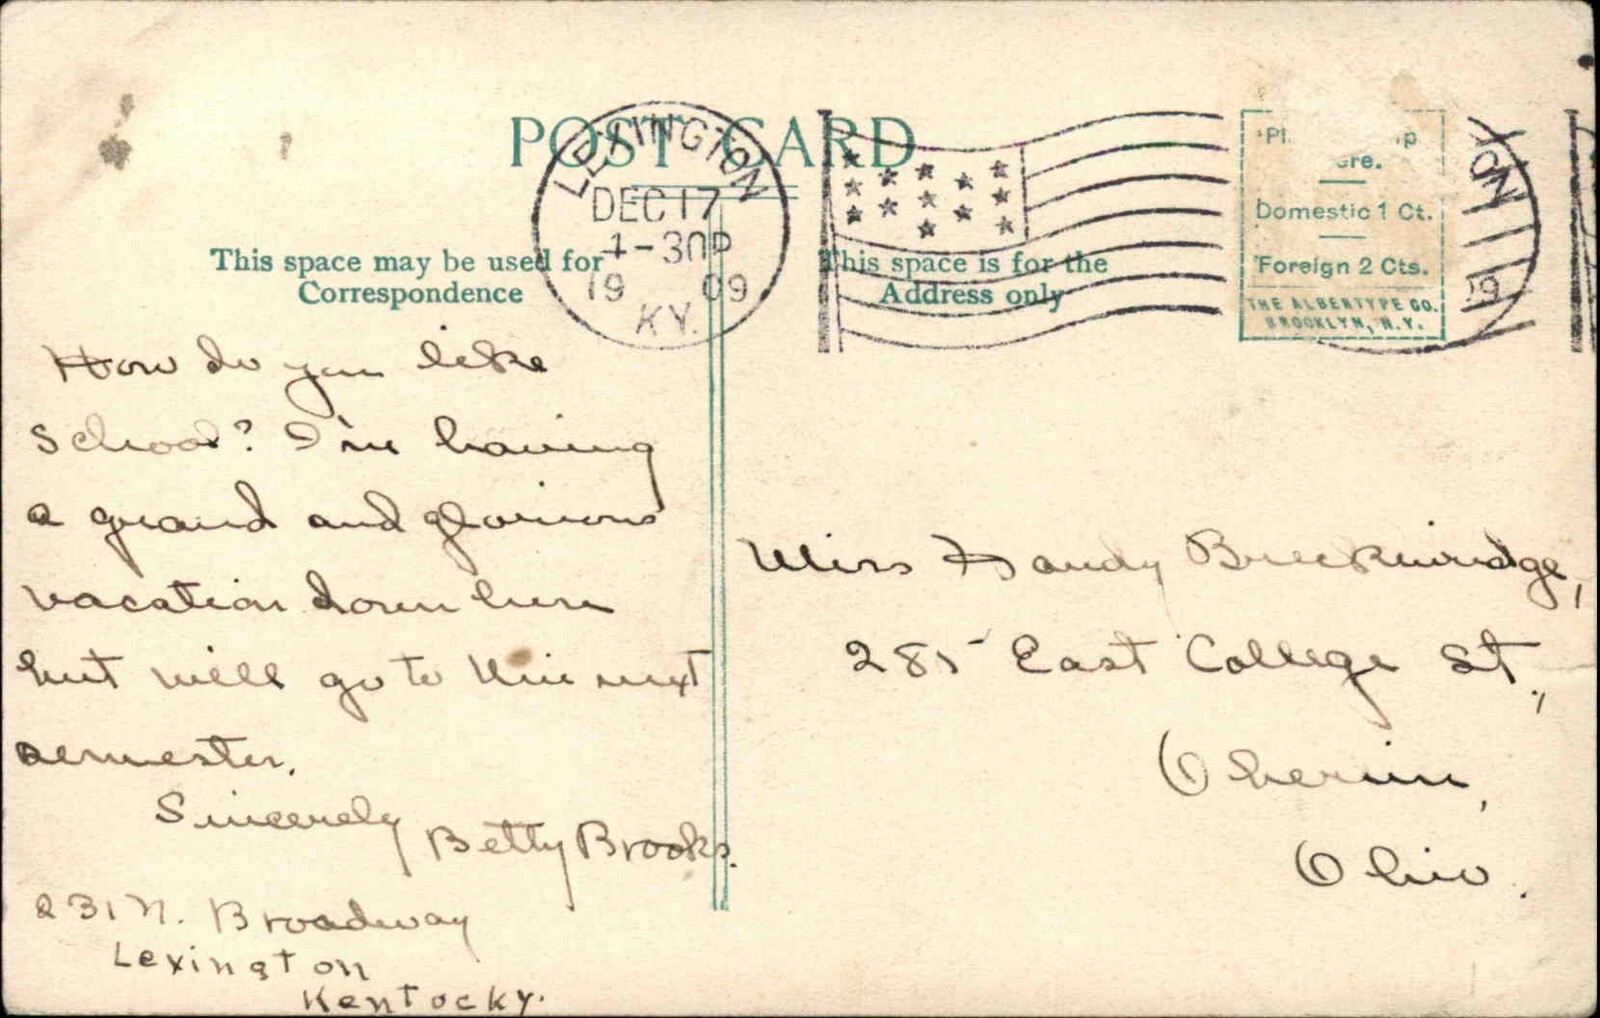 POST CARD
LEXINGTON
DEC 17
1-30P
19 09
KY.
This space may be used for
Correspondence
This space is for the
Address only
Domestic 1 Ct.
Foreign 2 Cts.
THE ALBERTYPE CO.
BROOKLYN, N.Y.
ON
09
How do you like
school? I'm having
a grand and glorious
vacation down here
but will go to Uni next
semester.
Sincerely
Betty Brooks.
231 N. Broadway
Lexington
Kentocky.
Miss Handy Breckinridge,
285 East College St.,
Oberlin,
Ohio.